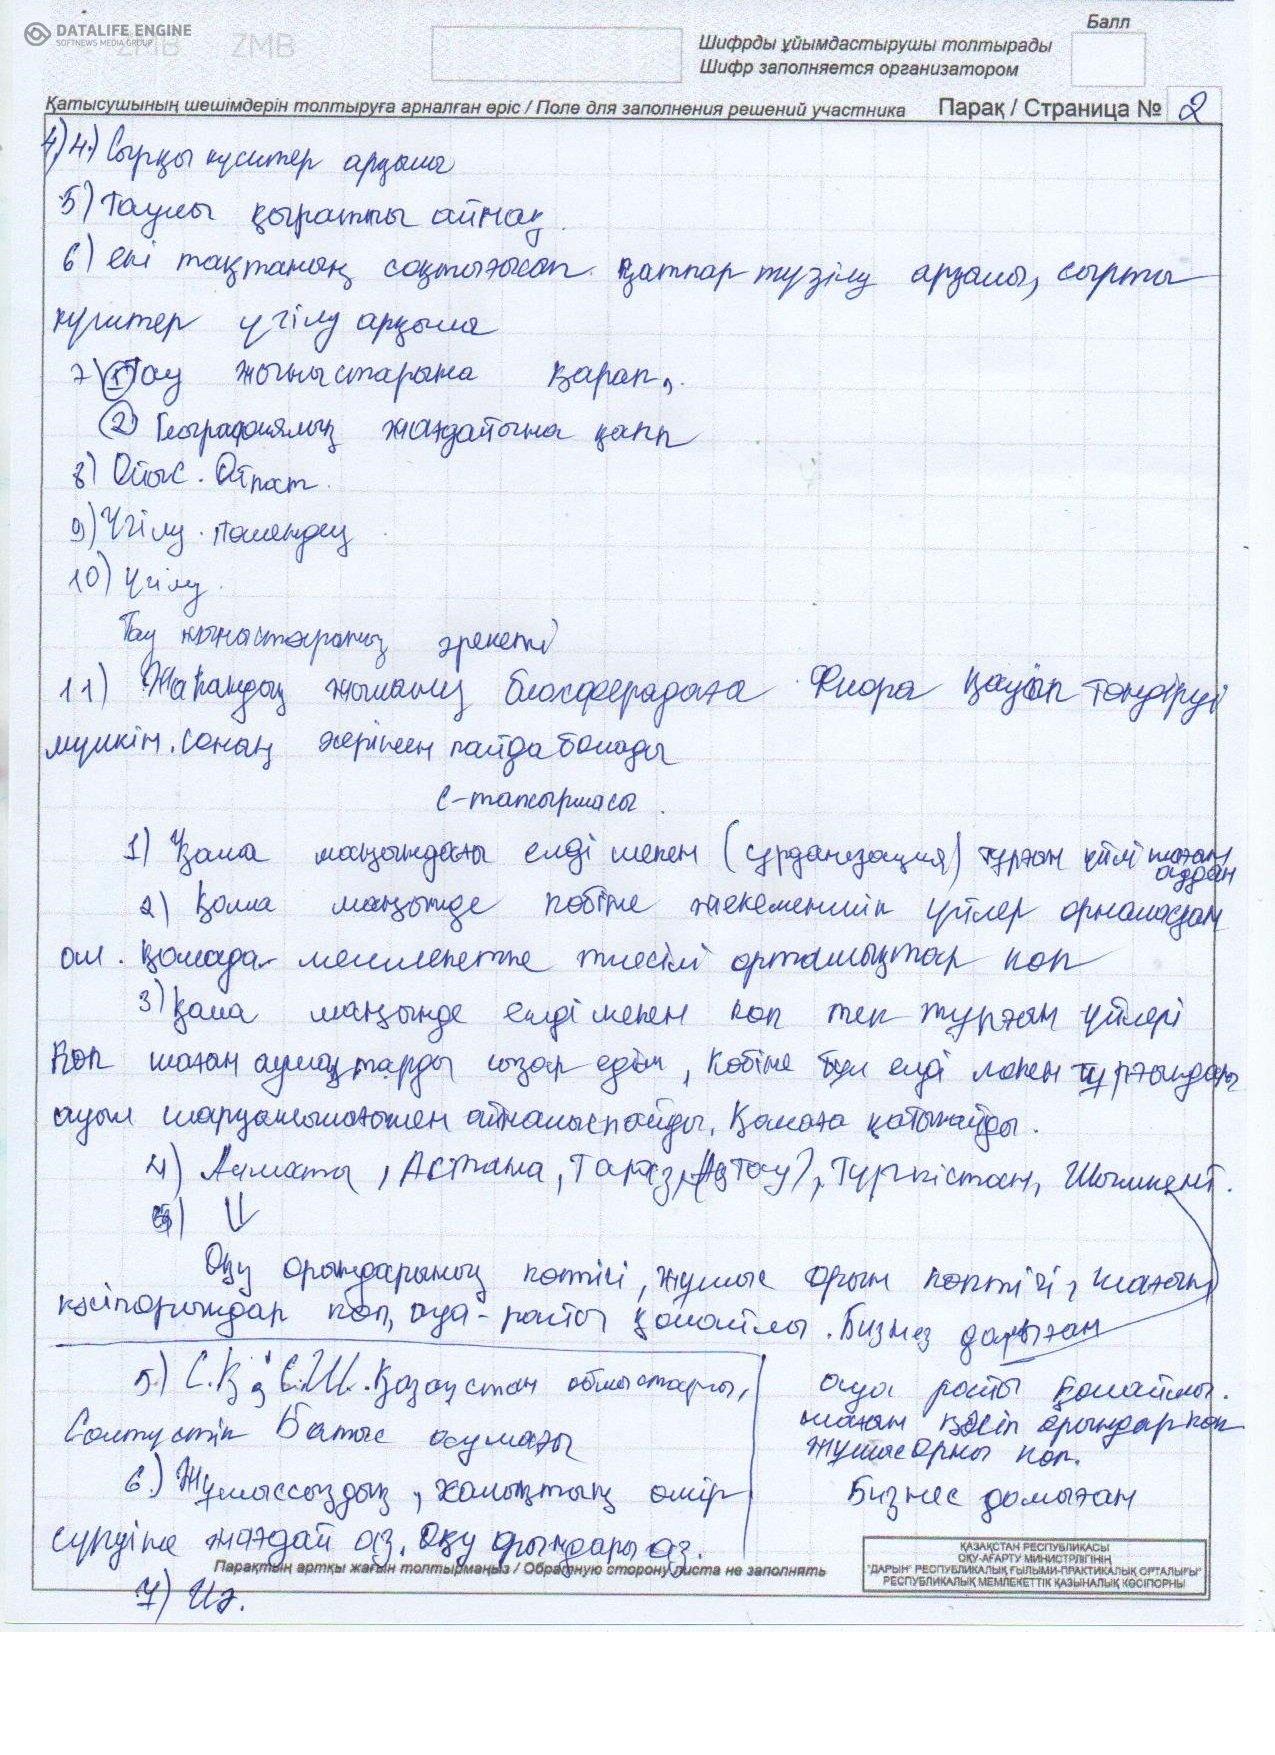 DATALIFE ENGINE
SOFTNEWS MEDIA GROUP
ZMB ZMB
Балл
Шифрды ұйымдастырушы толтырады
Шифр заполняется организатором
Қатысушының шешімдерін толтыруға арналған өріс / Поле для заполнения решений участника Парақ / Страница № 2
4) 4.) Сыртқы күштер арқылы
5) Таулы қыратты аймақ.
6) екі тақтаның соқтығысып қатпар түзілу арқылы, сыртқы
күштер үгілу арқылы
7) ① Тау жыныстарына қарап,
② Географиялық жағдайына қарап
8) Ойыс. Ойпат.
9) Үгілу. төмендеу
10) Үгілу.
Тау жыныстарының әрекеті
11) Жаһандық жылыну биосферадағы Флора қауіп төндіруі
мүмкін. соның әсерінен пайда болады
С-тапсырмасы.
1) Қала маңындағы елді мекен (урданизация) тұрғын үйлі шағын
аудан
2) Қала маңында көбіне жекеменшік үйлер орналасқан
ал. Қалада - мемлекетке тиесілі орталықтар көп
3) Қала маңында елді мекен көп тек тұрғын үйлері
көп шағын аумақтарды сызар едім, көбіне бұл елді мекен тұрғындары
ауыл шаруашылығымен айналыспайды, Қалаға қатынайды.
4) Алматы, Астана, Тараз, (Ақтау), Түркістан, Шымкент.
Оқу орындарының көптігі, жұмыс орын көптігі, шағын
кәсіпорындар көп, ауа-райы қолайлы. Бизнез дамыған
5.) С.Қ, С.Ш. Қазақстан облыстары,
Солтүстік Батыс аумағы
6.) Жұмыссыздық, халықтың өмір
сүруіне жағдай аз. Оқу орындары аз.
7) Иә.
ауа райы қолайлы.
шағын кәсіп орындар көп
жұмыс орны көп.
Бизнес дамыған
Парақтың артқы жағын толтырмаңыз / Обратную сторону листа не заполнять
ҚАЗАҚСТАН РЕСПУБЛИКАСЫ
ОҚУ-АҒАРТУ МИНИСТРЛІГІНІҢ
"ДАРЫН" РЕСПУБЛИКАЛЫҚ ҒЫЛЫМИ-ПРАКТИКАЛЫҚ ОРТАЛЫҒЫ"
РЕСПУБЛИКАЛЫҚ МЕМЛЕКЕТТІК ҚАЗЫНАЛЫҚ КӘСІПОРНЫ